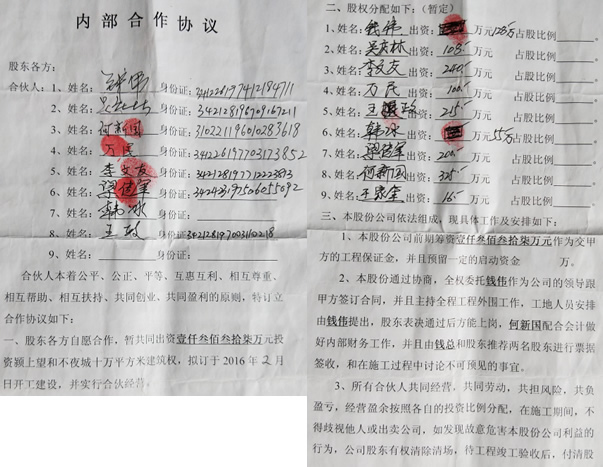 内部合作协议
股东各方:
合伙人: 1、姓名: 身份证: 341226197412184711
2、姓名: 身份证: 342128196709167211
3、姓名: 何新国 身份证: 310221196010283618
4、姓名: 万民 身份证: 341226197703173852
5、姓名: 李文友 身份证:
6、姓名: 梁传军 身份证:
7、姓名: 韩冰 身份证:
8、姓名: 王政 身份证: 342128197003110218
9、姓名: 身份证:
合伙人本着公平、公正、平等、互惠互利、相互尊重、
相互帮助、相互扶持、共同创业、共同盈利的原则，特订立
合作协议如下:
一、股东各方自愿合作，暂共同出资壹仟叁佰叁拾柒万元投
资颍上望和不夜城十万平方米建筑权，拟订于 2016 年 2 月
日开工建设，并实行合伙经营。
二、股权分配如下:（暂定）
1、姓名: 钱伟 出资: 万元 占股比例
2、姓名: 吴庆林 出资: 108.5 万元 占股比例
3、姓名: 李文友 出资: 240.5 万元 占股比例
4、姓名: 万民 出资: 万元 占股比例
5、姓名: 王政 出资: 215.5 万元 占股比例
6、姓名: 韩冰 出资: 万元 55万 占股比例
7、姓名: 梁传军 出资: 万元 占股比例
8、姓名: 何新国 出资: 万元 占股比例
9、姓名: 出资: 万元 占股比例
三、本股份公司依法组成，现具体工作及安排如下:
1、本股份公司前期筹资壹仟叁佰叁拾柒万元作为交甲
方的工程保证金，并且预留一定的启动资金 万。
2、本股份通过协商，全权委托钱伟作为公司的领导跟
甲方签订合同，并且主持全程工程外围工作，工地人员安排
由钱伟提出，股东表决通过后方能上岗，何新国配合会计做
好内部财务工作，并且由钱总和股东推荐两名股东进行票据
签收，和在施工过程中讨论不可预见的事宜。
3、所有合伙人共同经营，共同劳动，共担风险，共负
盈亏，经营盈余按照各自的投资比例分配，在施工期间，不
得歧视他人或出卖公司，如发现故意危害本股份公司利益的
行为，公司股东有权清除清场，待工程竣工验收后，付清股